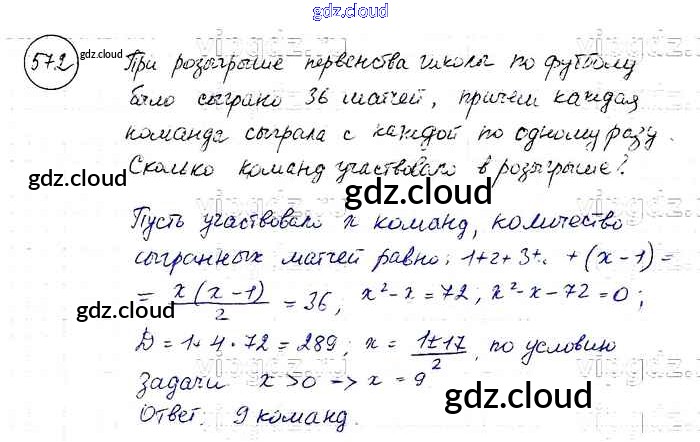 gdz.cloud
572 gdz.cloud При розыгрыше первенства школы по футболу
было сыграно 36 матчей, причем каждая
команда сыграла с каждой по одному разу.
gdz.cloud Сколько команд участвовало в розыгрыше?
gdz.cloud
Пусть участвовало x команд, количество
сыгранных матчей равно: 1+2+3+.. +(x-1)=
= x(x-1)/2 = 36; x²-x=72; x²-x-72=0;
gdz.cloud gdz.cloud
D=1+4·72=289; x = 1±17/2, по условию
задачи x>0 -> x=9
Ответ. 9 команд.
gdz.cloud gdz.cloud